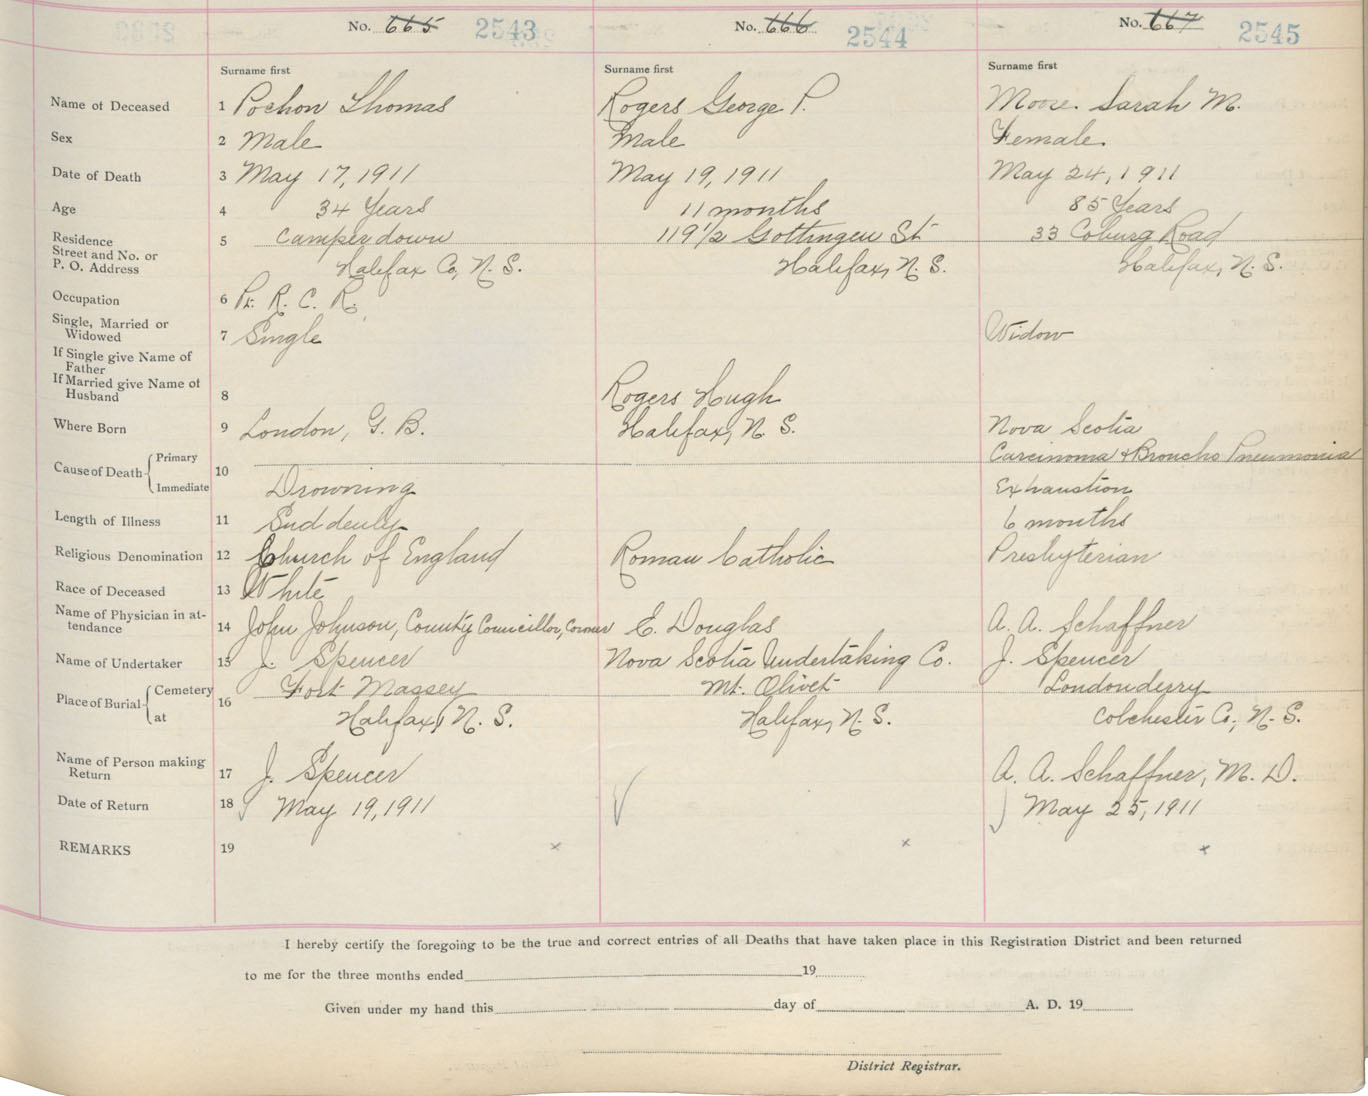 No. 665 2543 No. 666 2544 No. 667 2545
Surname first Surname first Surname first
Name of Deceased 1 Pochon Thomas Rogers George P. Moore. Sarah M.
Sex 2 Male Male Female
Date of Death 3 May 17, 1911 May 19, 1911 May 24, 1911
Age 4 34 Years 11 months 85 Years
Residence 5 Camperdown 119 1/2 Gottingen St 33 Coburg Road
Street and No. or
P. O. Address Halifax Co, N. S. Halifax, N. S. Halifax, N. S.
Occupation 6 Pt. R. C. R.
Single, Married or
Widowed 7 Single Widow
If Single give Name of
Father
If Married give Name of
Husband 8 Rogers Hugh
Where Born 9 London, G. B. Halifax, N. S. Nova Scotia
Cause of Death Primary 10 Carcinoma & Broncho Pneumonia
Immediate Drowning Exhaustion
Length of Illness 11 Suddenly 6 months
Religious Denomination 12 Church of England Roman Catholic Presbyterian
Race of Deceased 13 White
Name of Physician in at-
tendance 14 John Johnson, County Councillor, Corner E. Douglas A. A. Schaffner
Name of Undertaker 15 J. Spencer Nova Scotia Undertaking Co. J. Spencer
Place of Burial Cemetery 16 Fort Massey Mt. Olivet Londonderry
at Halifax, N. S. Halifax, N. S. Colchester Co, N. S.
Name of Person making
Return 17 J. Spencer A. A. Schaffner, M. D.
Date of Return 18 May 19, 1911 May 25, 1911
REMARKS 19 x x x
I hereby certify the foregoing to be the true and correct entries of all Deaths that have taken place in this Registration District and been returned
to me for the three months ended 19
Given under my hand this day of A. D. 19
District Registrar.